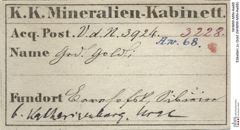 K. K. Mineralien-Kabinett.
Acq.-Post. V.d.N. 3924. 3228.
Aw. 68.
Name Ged. Gold;
Fundort Beresofsk, Sibirien
b. Katharinenburg, Ural